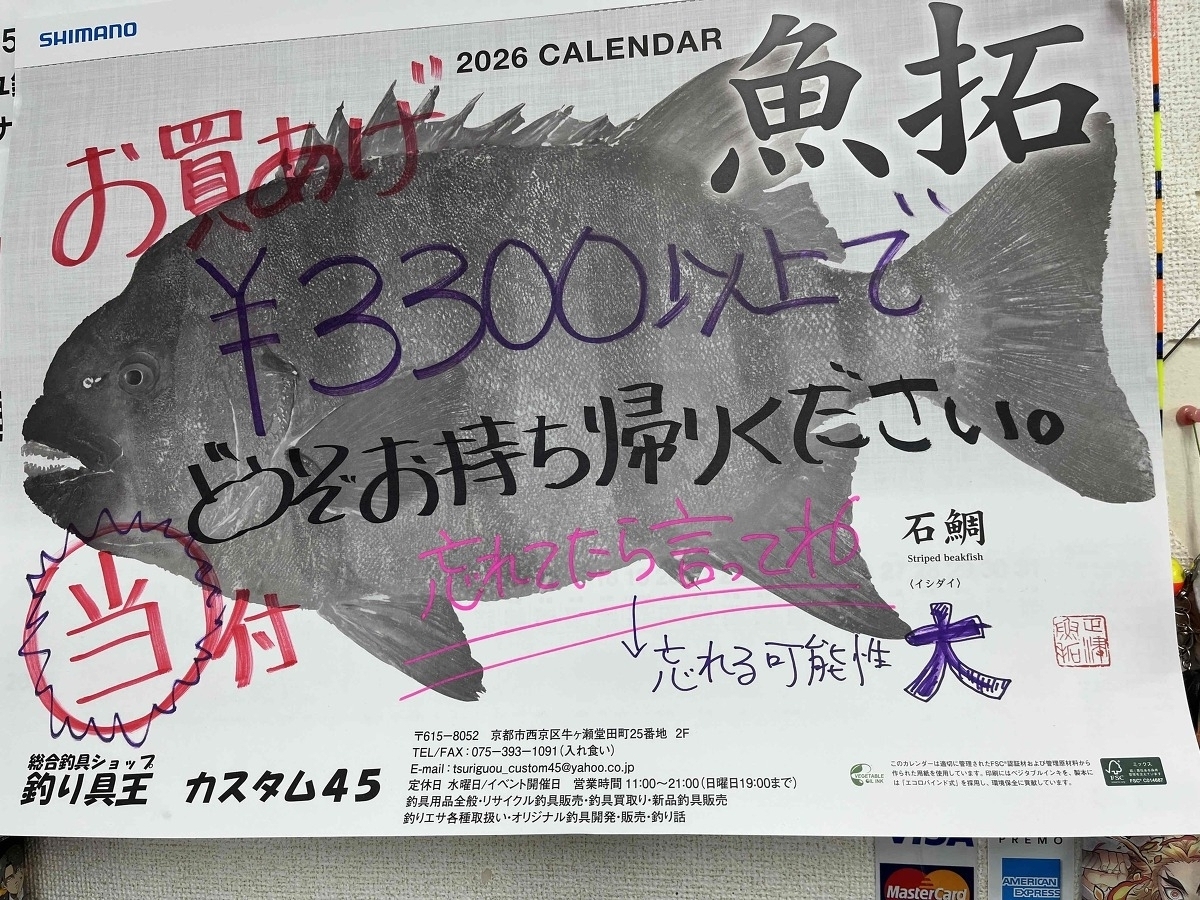 SHIMANO
2026 CALENDAR
魚拓
お買あげ
¥3300以上で
どうぞお持ち帰りください。
忘れてたら言ってね
忘れる可能性 大
当付
石鯛
Striped beakfish
(イシダイ)
総合釣具ショップ
釣り具王 カスタム45
〒615-8052 京都市西京区牛ヶ瀬堂田町25番地 2F
TEL/FAX:075-393-1091(入れ食い)
E-mail:tsuriguou_custom45@yahoo.co.jp
定休日 水曜日/イベント開催日 営業時間11:00~21:00(日曜日19:00まで)
釣具用品全般・リサイクル釣具販売・釣具買取り・新品釣具販売
釣りエサ各種取扱い・オリジナル釣具開発・販売・釣り話
VEGETABLE OIL INK
このカレンダーは適切に管理されたFSC®認証材および管理原材料から
作られた用紙を使用しています。印刷にはベジタブルインキを、製本に
は「エコロバインド式」を採用し、環境保全に貢献しています。
FSC
ミックス
FSC® C014687
VISA
PREMO
MasterCard
AMERICAN EXPRESS